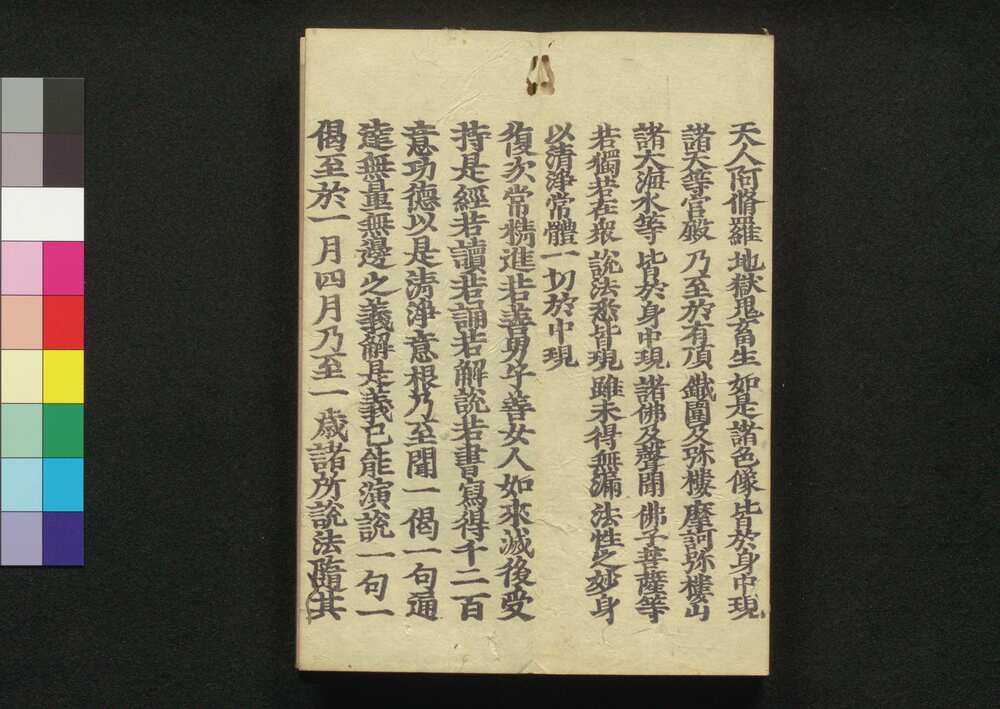 天人阿脩羅 地獄鬼畜生 如是諸色像 皆於身中現
諸天等宮殿 乃至於有頂 鐵圍及弥樓 摩訶弥樓山
諸大海水等 皆於身中現 諸佛及聲聞 佛子菩薩等
若獨若在衆 説法悉皆現 雖未得無漏 法性之妙身
以清淨常體 一切於中現
復次常精進若善男子善女人如來滅後受
持是經若讀若誦若解説若書寫得千二百
意功德以是清淨意根乃至聞一偈一句通
達無量無邊之義解是義已能演説一句一
偈至於一月四月乃至一歲諸所説法隨其